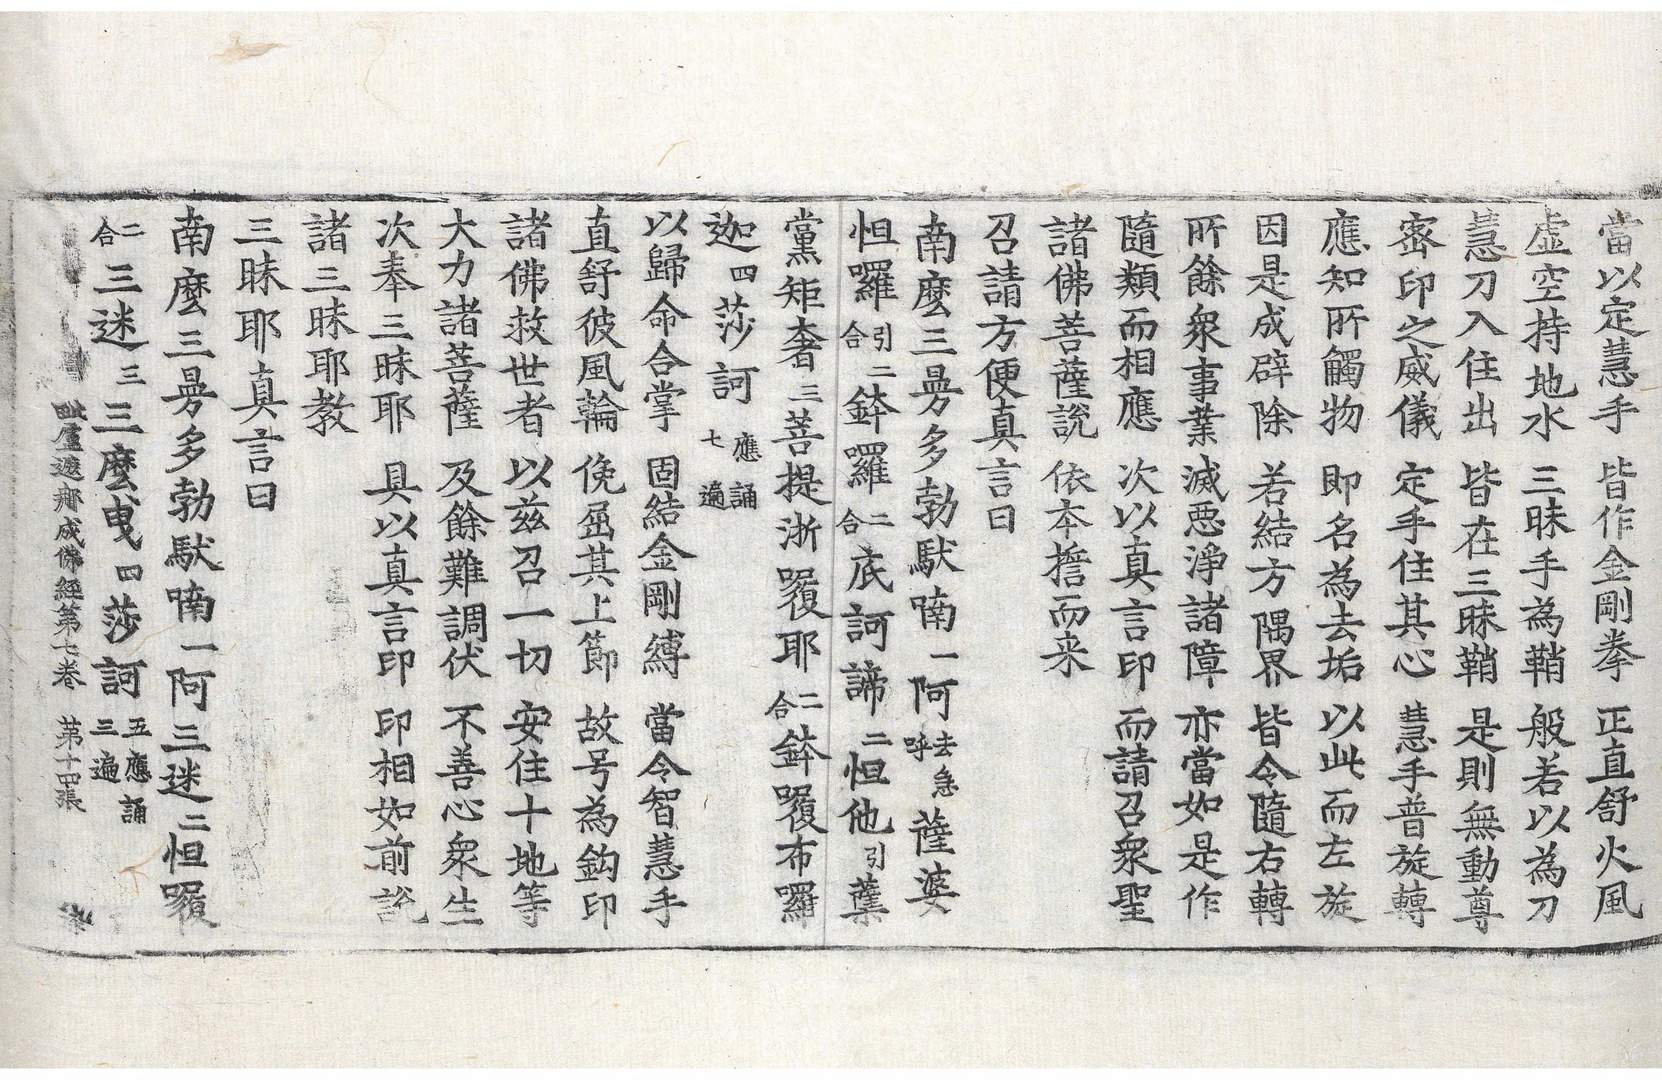 當以定慧手　皆作金剛拳　正直舒火風
虛空持地水　三昧手為鞘　般若以為刀
慧刀入住出　皆在三昧鞘　是則無動尊
密印之威儀　定手住其心　慧手普旋轉
應知所觸物　即名為去垢　以此而左旋
因是成辟除　若結方隅界　皆令隨右轉
所餘衆事業　滅惡淨諸障　亦當如是作
隨類而相應　次以真言印　而請召衆聖
諸佛菩薩說　依本擔而来
召請方便真言曰
南麼三曼多勃馱喃一阿去急呼薩婆
怛囉引二合鉢囉二合底訶諦二怛他引蘖
黨矩奢三菩提浙𠼝耶二合鉢𠼝布囉
迦四莎訶應誦七遍
以歸命合掌　固結金剛縛　當令智慧手
直舒彼風輪　俛屈其上節　故号為鈎印
諸佛救世者　以茲召一切　安住十地等
大力諸菩薩　及餘難調伏　不善心衆生
次奉三昧耶　具以真言印　印相如前說
諸三昧耶教
三昧耶真言曰
南麼三曼多勃馱喃一阿三迷二怛𠼝
二合三迷三三麼曳四莎訶五應誦三遍
毗盧遮那成佛經第七卷　第十四張